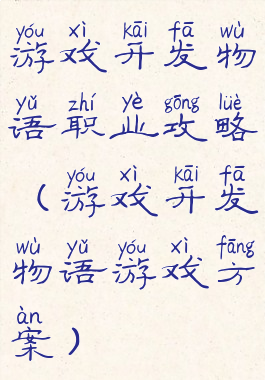 yóu xì kāi fā wù
游戏开发物
yǔ zhí yè gōng lüè
语职业攻略
yóu xì kāi fā
（游戏开发
wù yǔ yóu xì fāng
物语游戏方
àn
案）